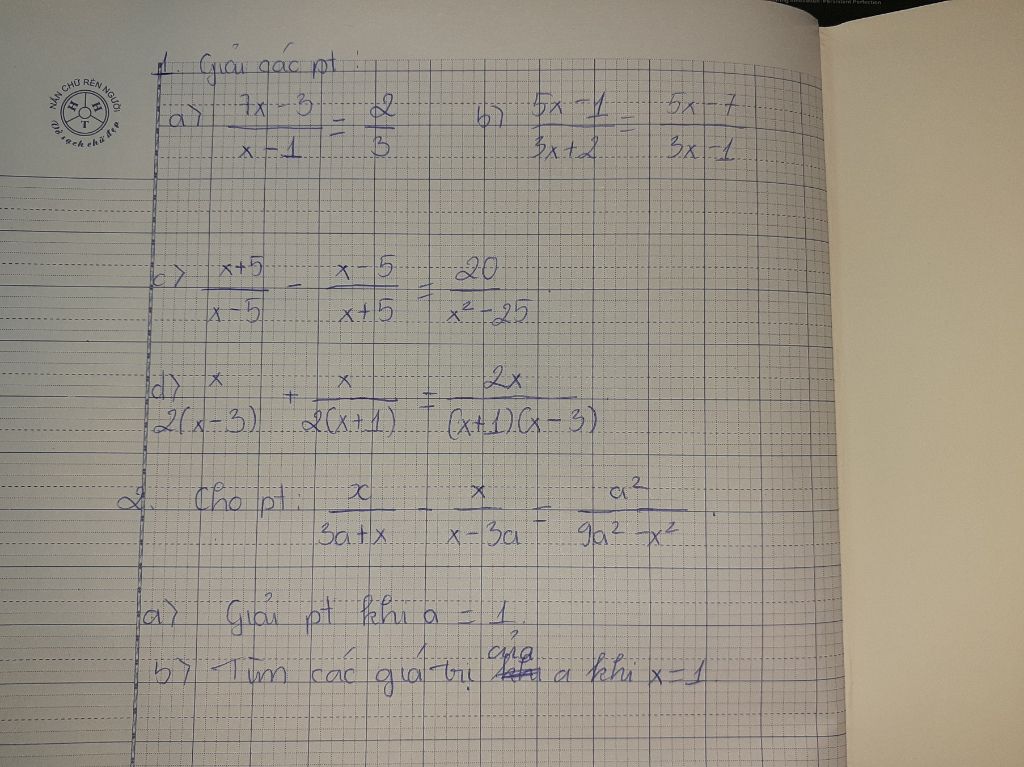 Persistent Perfection
NẮN CHỮ RÈN NGƯỜI
H H T
Vở sạch chữ đẹp
1. Giải các pt :
a) (7x - 3)/(x - 1) = 2/3 b) (5x - 1)/(3x + 2) = (5x - 7)/(3x - 1)
c) (x+5)/(x - 5) - (x - 5)/(x + 5) = 20/(x² - 25)
d) x/(2(x - 3)) + x/(2(x + 1)) = 2x/((x+1)(x - 3))
2. Cho pt: x/(3a + x) - x/(x - 3a) = a²/(9a² - x²).
a) Giải pt khi a = 1.
b) Tìm các giá trị của a khi x = 1